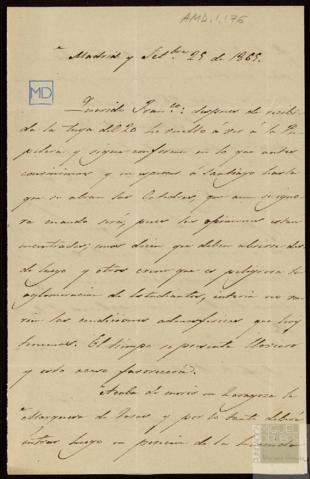 AMD.I.176
Madrid y Set.bre 25 de 1865.
MD
Querido Fran.co: despues de recibi-
da la tuya del 20 he vuelto á ver á la Pu-
y sigue conforme en lo que antes
convinimos y en esperar á Santiago hasta
que se abran las Catedras, que aun se igno-
ra cuando será, pues las opiniones estan
encontradas; unos dicen que deben abrirse des-
de luego y otros creen que es peligrosa la
aglomeracion de Estudiantes, interin no va-
rien las condiciones atmosfericas que hoy
tenemos. El tiempo se presenta lluvioso
y esto acaso favorecerá.
Acaba de morir en Zaragoza la
Marquesa de y por lo tanto deberá
entrar luego en posesion de la